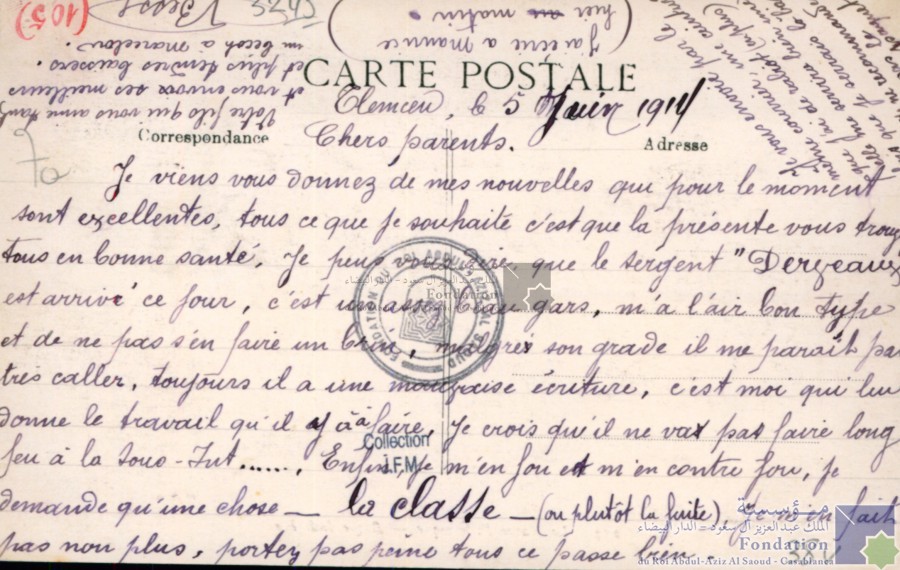 (105)
5245
Tlemcen, le 5 Juin 1914
CARTE POSTALE
Correspondance
Adresse
Chers parents.
Je viens vous donnez de mes nouvelles qui pour le moment
sont excellentes, tous ce que je souhaite c'est que la présente vous trouve
tous en bonne santé. Je peus vous dire que le sergent "Derveaux
est arrivé ce jour, c'est un assez beau gars, m'a l'air bon type
et de ne pas s'en faire un, malgrés son grade il me parait pas
très caller, toujours il a une mauvaise écriture, c'est moi qui lui
donne le travail qu'il y a à faire, Je crois qu'il ne vas pas faire long
feu à la Sous-Int......, Enfin, je m'en fou et m'en contre fou, je
demande qu'une chose — la classe — (ou plutôt la fuite),
pas non plus, portez pas peine tous ce passe bien.
Votre filo qui vous aime
et vous envoi ses meilleurs
et plus tendres baisers.
un becot à Marcelou.
J'ai écrit a Maurice
hier matin
Je vous envoie par le
même courrier, une
7a
382
FONDATION DU ROI ABDUL AZIZ AL SAOUD
Collection
J.F.M.
Fondation
مؤسسة
الملك عبد العزيز آل سعود - الدار البيضاء
Fondation
du Roi Abdul-Aziz Al Saoud - Casablanca